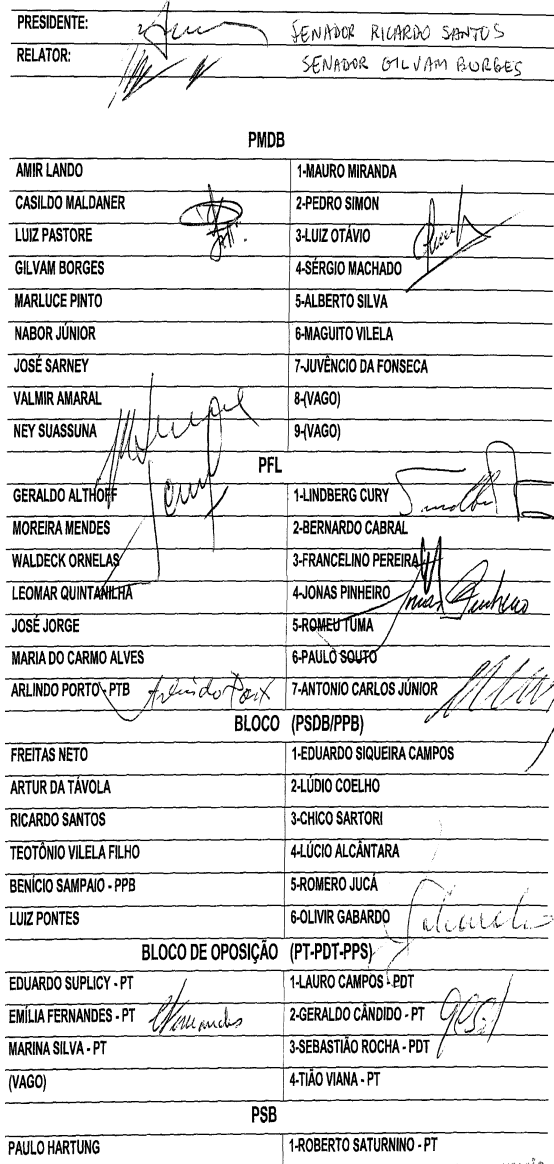 PRESIDENTE: SENADOR RICARDO SANTOS
RELATOR: SENADOR GILVAM BORGES
PMDB
AMIR LANDO 1-MAURO MIRANDA
CASILDO MALDANER 2-PEDRO SIMON
LUIZ PASTORE 3-LUIZ OTÁVIO
GILVAM BORGES 4-SÉRGIO MACHADO
MARLUCE PINTO 5-ALBERTO SILVA
NABOR JÚNIOR 6-MAGUITO VILELA
JOSÉ SARNEY 7-JUVÊNCIO DA FONSECA
VALMIR AMARAL 8-(VAGO)
NEY SUASSUNA 9-(VAGO)
PFL
GERALDO ALTHOFF 1-LINDBERG CURY
MOREIRA MENDES 2-BERNARDO CABRAL
WALDECK ORNELAS 3-FRANCELINO PEREIRA
LEOMAR QUINTANILHA 4-JONAS PINHEIRO Jonas Pinheiro
JOSÉ JORGE 5-ROMEU TUMA
MARIA DO CARMO ALVES 6-PAULO SOUTO
ARLINDO PORTO - PTB Arlindo Porto 7-ANTONIO CARLOS JÚNIOR
BLOCO (PSDB/PPB)
FREITAS NETO 1-EDUARDO SIQUEIRA CAMPOS
ARTUR DA TÁVOLA 2-LÚDIO COELHO
RICARDO SANTOS 3-CHICO SARTORI
TEOTÔNIO VILELA FILHO 4-LÚCIO ALCÂNTARA
BENÍCIO SAMPAIO - PPB 5-ROMERO JUCÁ
LUIZ PONTES 6-OLIVIR GABARDO
BLOCO DE OPOSIÇÃO (PT-PDT-PPS)
EDUARDO SUPLICY - PT 1-LAURO CAMPOS - PDT
EMÍLIA FERNANDES - PT 2-GERALDO CÂNDIDO - PT
MARINA SILVA - PT 3-SEBASTIÃO ROCHA - PDT
(VAGO) 4-TIÃO VIANA - PT
PSB
PAULO HARTUNG 1-ROBERTO SATURNINO - PT